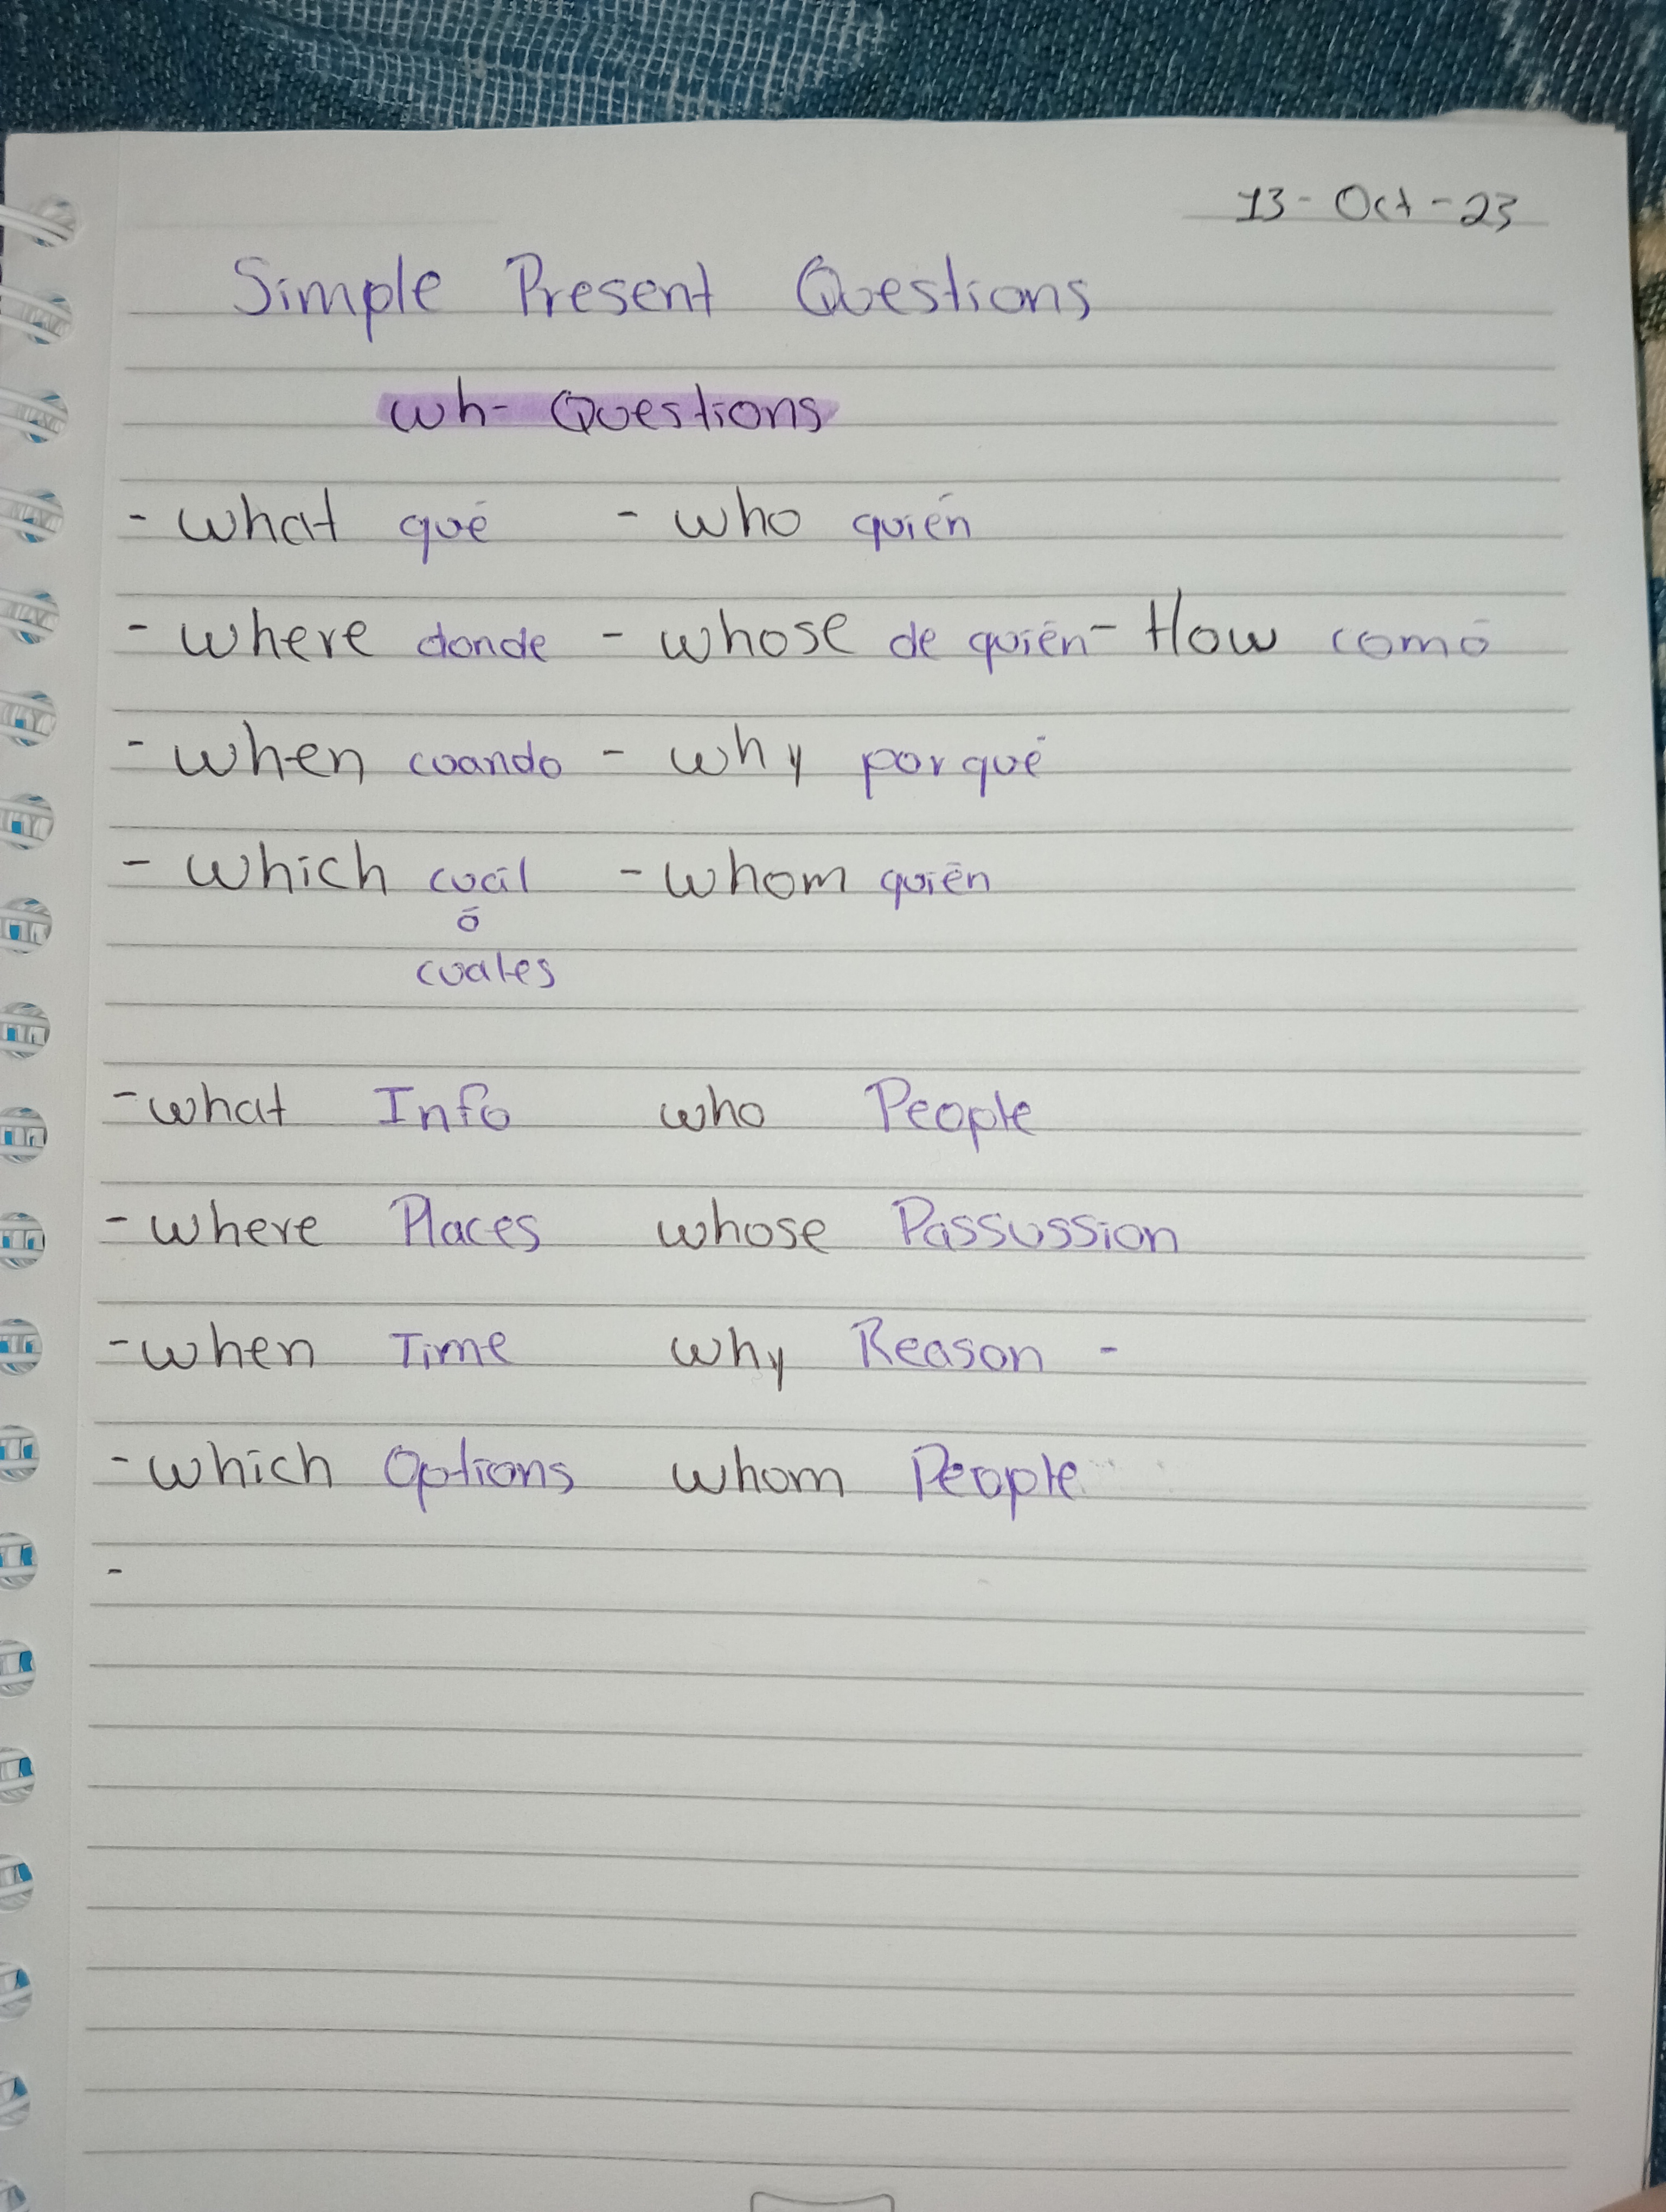 13-Oct-23
Simple Present Questions
Wh- Questions
- What qué - Who quién
- Where donde - Whose de quién - How comó
- When cuando - Why por qué
- Which cuál - Whom quién
ó
cuales
- What Info Who People
- Where Places Whose Passussion
- When Time Why Reason -
- Which Options Whom People
-